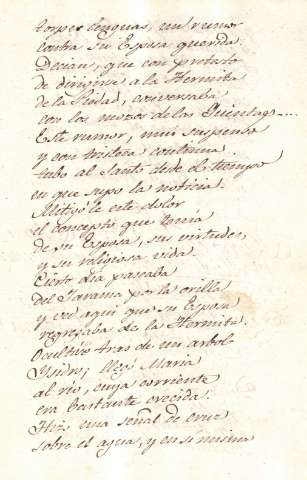 torpes lenguas, un rumor
contra su Esposa querida.
Decian, que con pretesto
de dirigirse a la Hermita
de la Piedad, conversaba
con los mozos de las Quintas....
Este rumor, mui suspenso
y con tristeza continua
tubo al Santo desde el tiempo
en que supo la noticia.
Mitigó le este dolor
el concepto que tenia
de su Esposa, sus virtudes,
y su religiosa vida.
Cierto dia paseaba
del Jarama por la orilla
y ve aqui que su Esposa
regresaba de la Hermita.
Ocultóse tras de un arbol
Ysidro; llegó Maria
al rio, cuya corriente
era bastante crecida.
Hizo una señal de cruz
sobre el agua, y en si misma